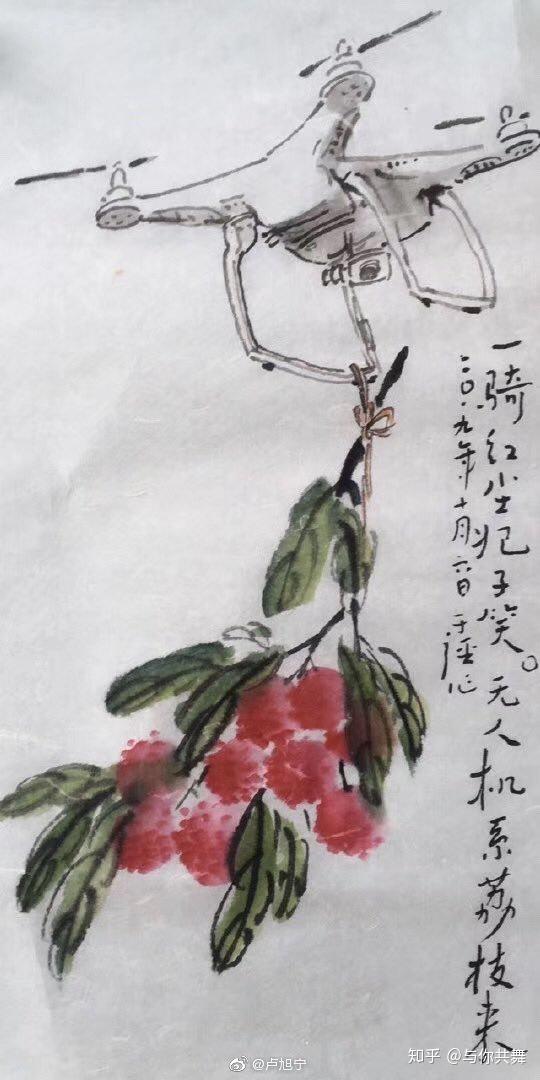 一骑红尘妃子笑。无人机系荔枝来
二〇一九年十月六日于
@卢旭宁
知乎 @与你共舞